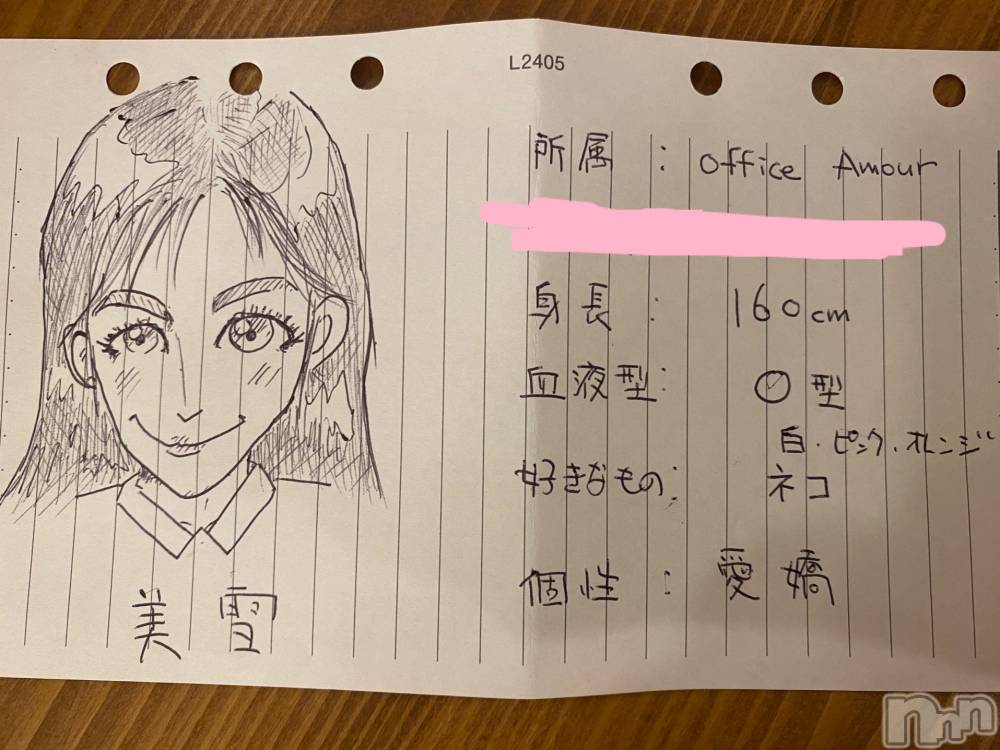 L2405
所属 : office Amour
身長 : 160cm
血液型 : O型
白・ピンク・オレンジ
好きなもの : ネコ
個性 : 愛嬌
美雪
nnn